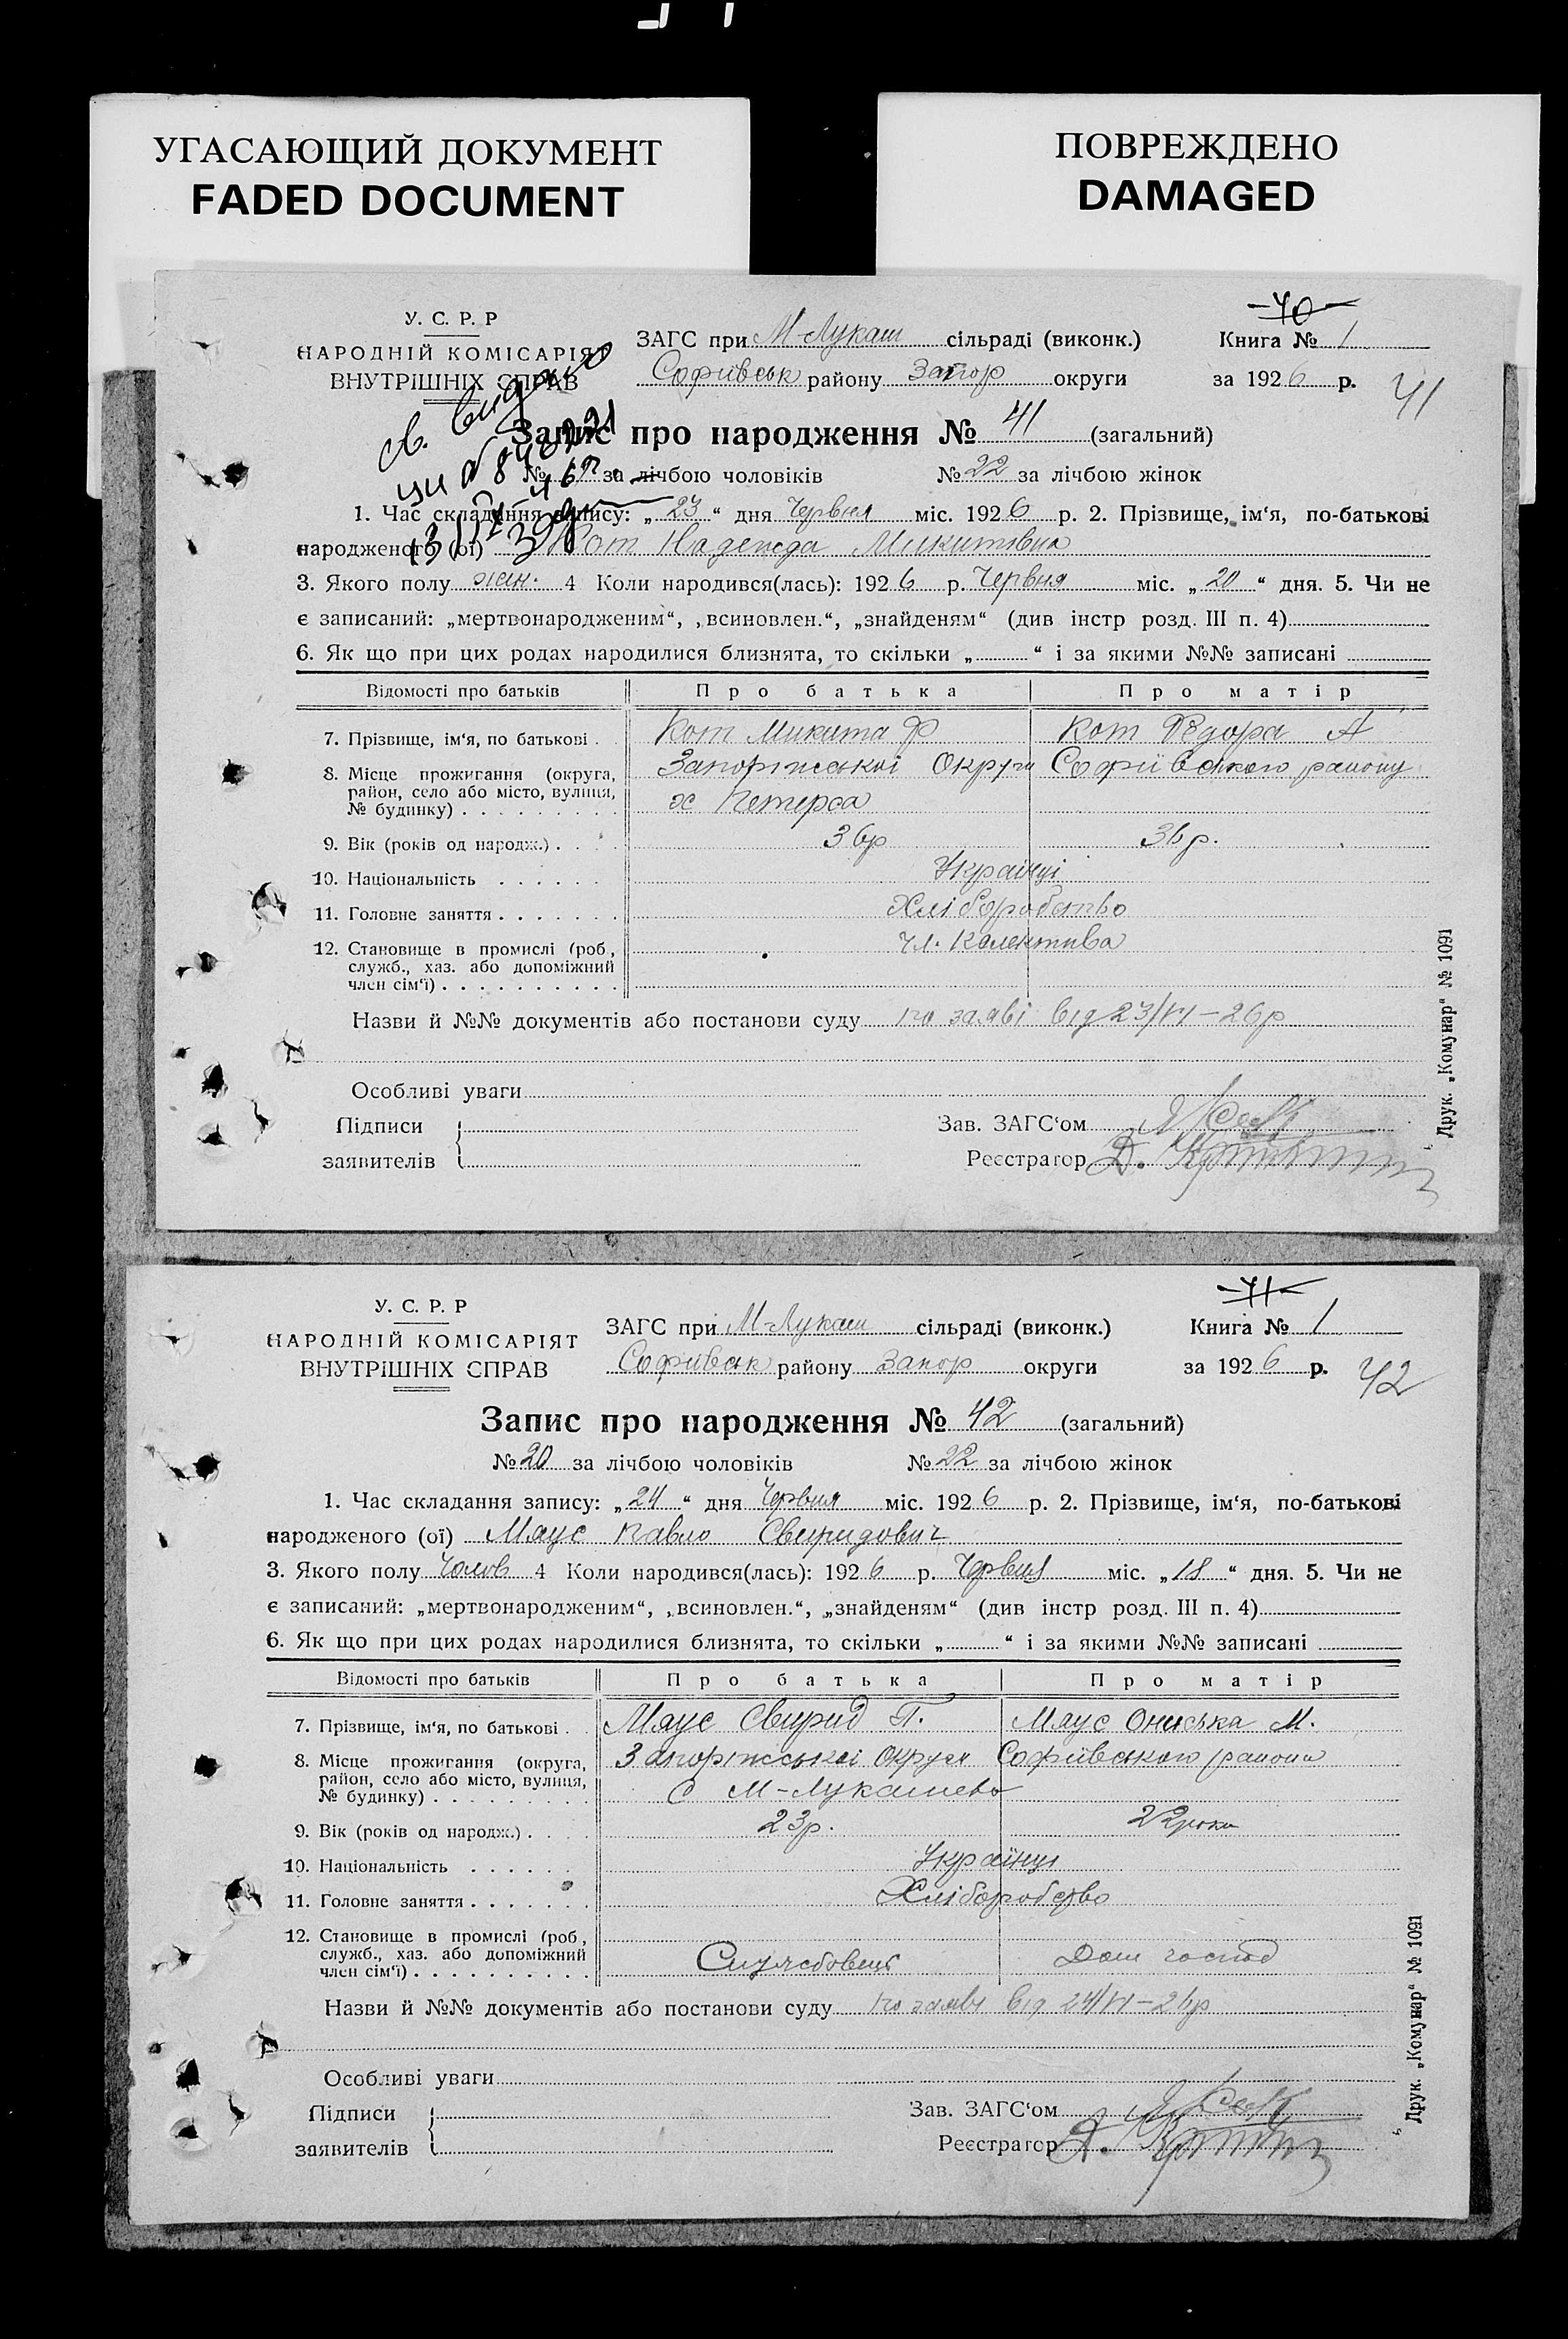 УГАСАЮЩИЙ ДОКУМЕНТ
FADED DOCUMENT
ПОВРЕЖДЕНО
DAMAGED
У. С. Р. Р
НАРОДНІЙ КОМІСАРІЯТ
ВНУТРІШНІХ СПРАВ
ЗАГС при М-Лукаш сільраді (виконк.)
Софіївськ району Запор округи
40
Книга № 1
за 1926 р.
41
св. видано
Запис про народження № 41 (загальний)
№ за лічбою чоловіків № 22 за лічбою жінок
1. Час складання запису: „23“ дня Червня міс. 1926 р. 2. Прізвище, ім‘я, по-батькові
народженого (ої) Кот Надежда Микитовна
3. Якого полу жін. 4 Коли народився(лась): 1926 р. Червня міс. „20“ дня. 5. Чи не
є записаний: „мертвонародженим“, „всиновлен.“, „знайденям“ (див інстр розд. III п. 4)
6. Як що при цих родах народилися близнята, то скільки „ “ і за якими №№ записані
Відомості про батьків Про батька Про матір
7. Прізвище, ім‘я, по батькові . Кот Микита Ф Кот Федора А
8. Місце прожигання (округа, район, село або місто, вулиця, № будинку) Запоріжської Округи Софіївського району
х Петерса
9. Вік (років од народж.) 36р 36р.
10. Національність Українці
11. Головне заняття Хліборобство
12. Становище в промислі (роб., служб., хаз. або допоміжний член сім‘ї) чл. Колектива
Назви й №№ документів або постанови суду по заяві від 23/VI–26р
Особливі уваги
Підписи
заявителів
Зав. ЗАГС‘ом
Реєстратор Д.
Друк. „Комунар“ № 1091
У. С. Р. Р
НАРОДНІЙ КОМІСАРІЯТ
ВНУТРІШНІХ СПРАВ
ЗАГС при М-Лукаш сільраді (виконк.)
Софіївськ району Запор округи
41
Книга № 1
за 1926 р.
42
Запис про народження № 42 (загальний)
№ 20 за лічбою чоловіків № 22 за лічбою жінок
1. Час складання запису: „24“ дня Червня міс. 1926 р. 2. Прізвище, ім‘я, по-батькові
народженого (ої) Маус Павло Свиридович
3. Якого полу Чолов 4 Коли народився(лась): 1926 р. Червня міс. „18“ дня. 5. Чи не
є записаний: „мертвонародженим“, „всиновлен.“, „знайденям“ (див інстр розд. III п. 4)
6. Як що при цих родах народилися близнята, то скільки „ “ і за якими №№ записані
Відомості про батьків Про батька Про матір
7. Прізвище, ім‘я, по батькові . Маус Свирид П. Маус Ониська М.
8. Місце прожигання (округа, район, село або місто, вулиця, № будинку) Запоріжської Округи Софіївського района
с М-Лукашево
9. Вік (років од народж.) 23р. 22роки
10. Національність Українці
11. Головне заняття Хліборобство
12. Становище в промислі (роб., служб., хаз. або допоміжний член сім‘ї) Службовець Дом господ
Назви й №№ документів або постанови суду по заяві від 24/VI–26р
Особливі уваги
Підписи
заявителів
Зав. ЗАГС‘ом
Реєстратор Д.
Друк. „Комунар“ № 1091